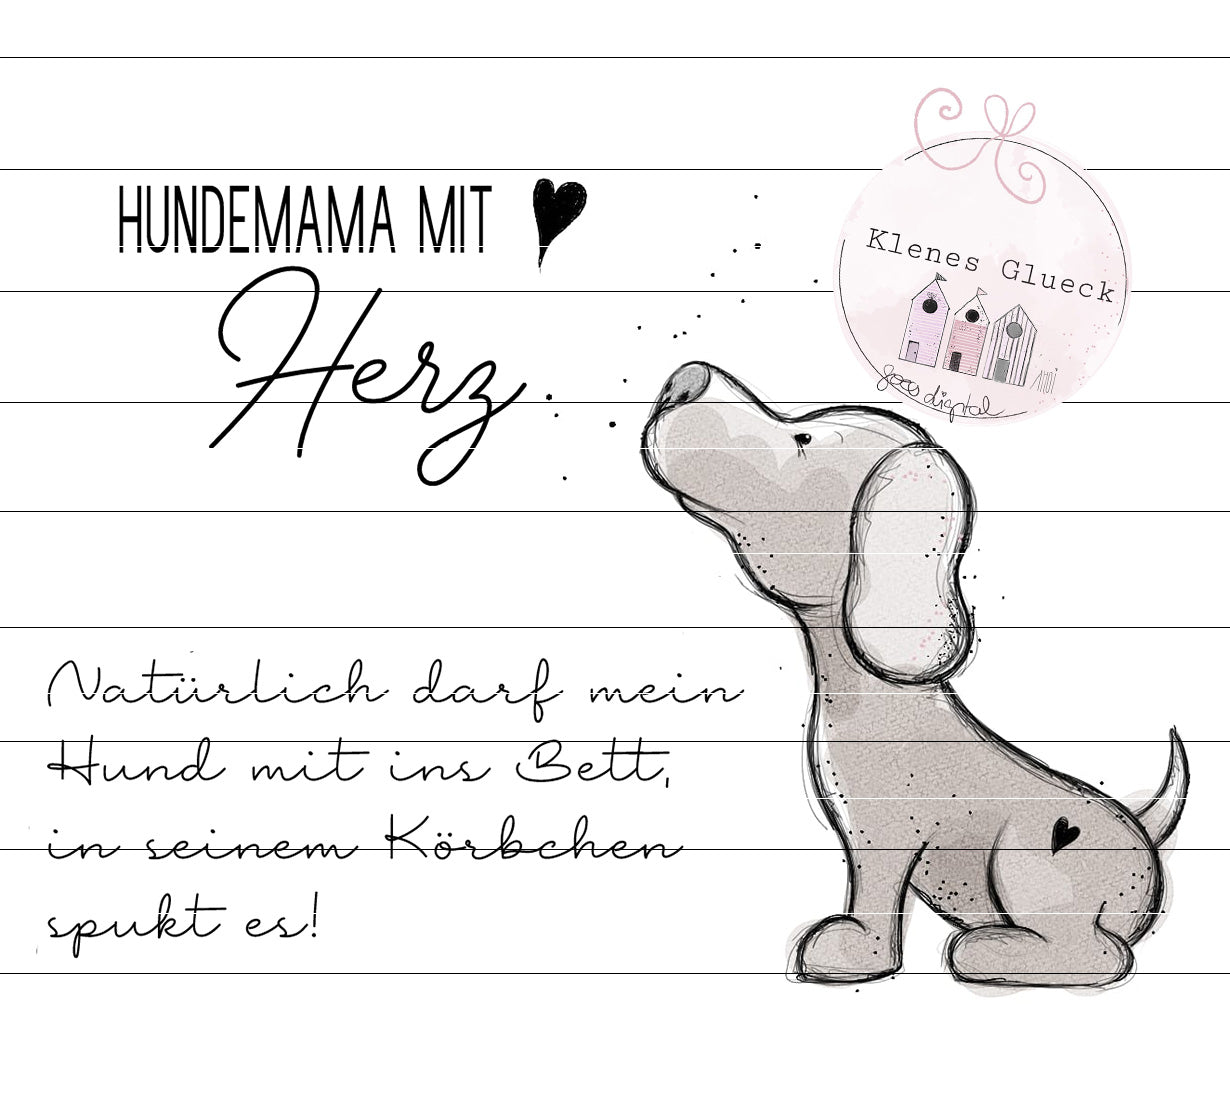 HUNDEMAMA MIT
Herz
Klenes Glueck
AHOI
goes digital
Natürlich darf mein
Hund mit ins Bett,
in seinem Körbchen
spukt es!